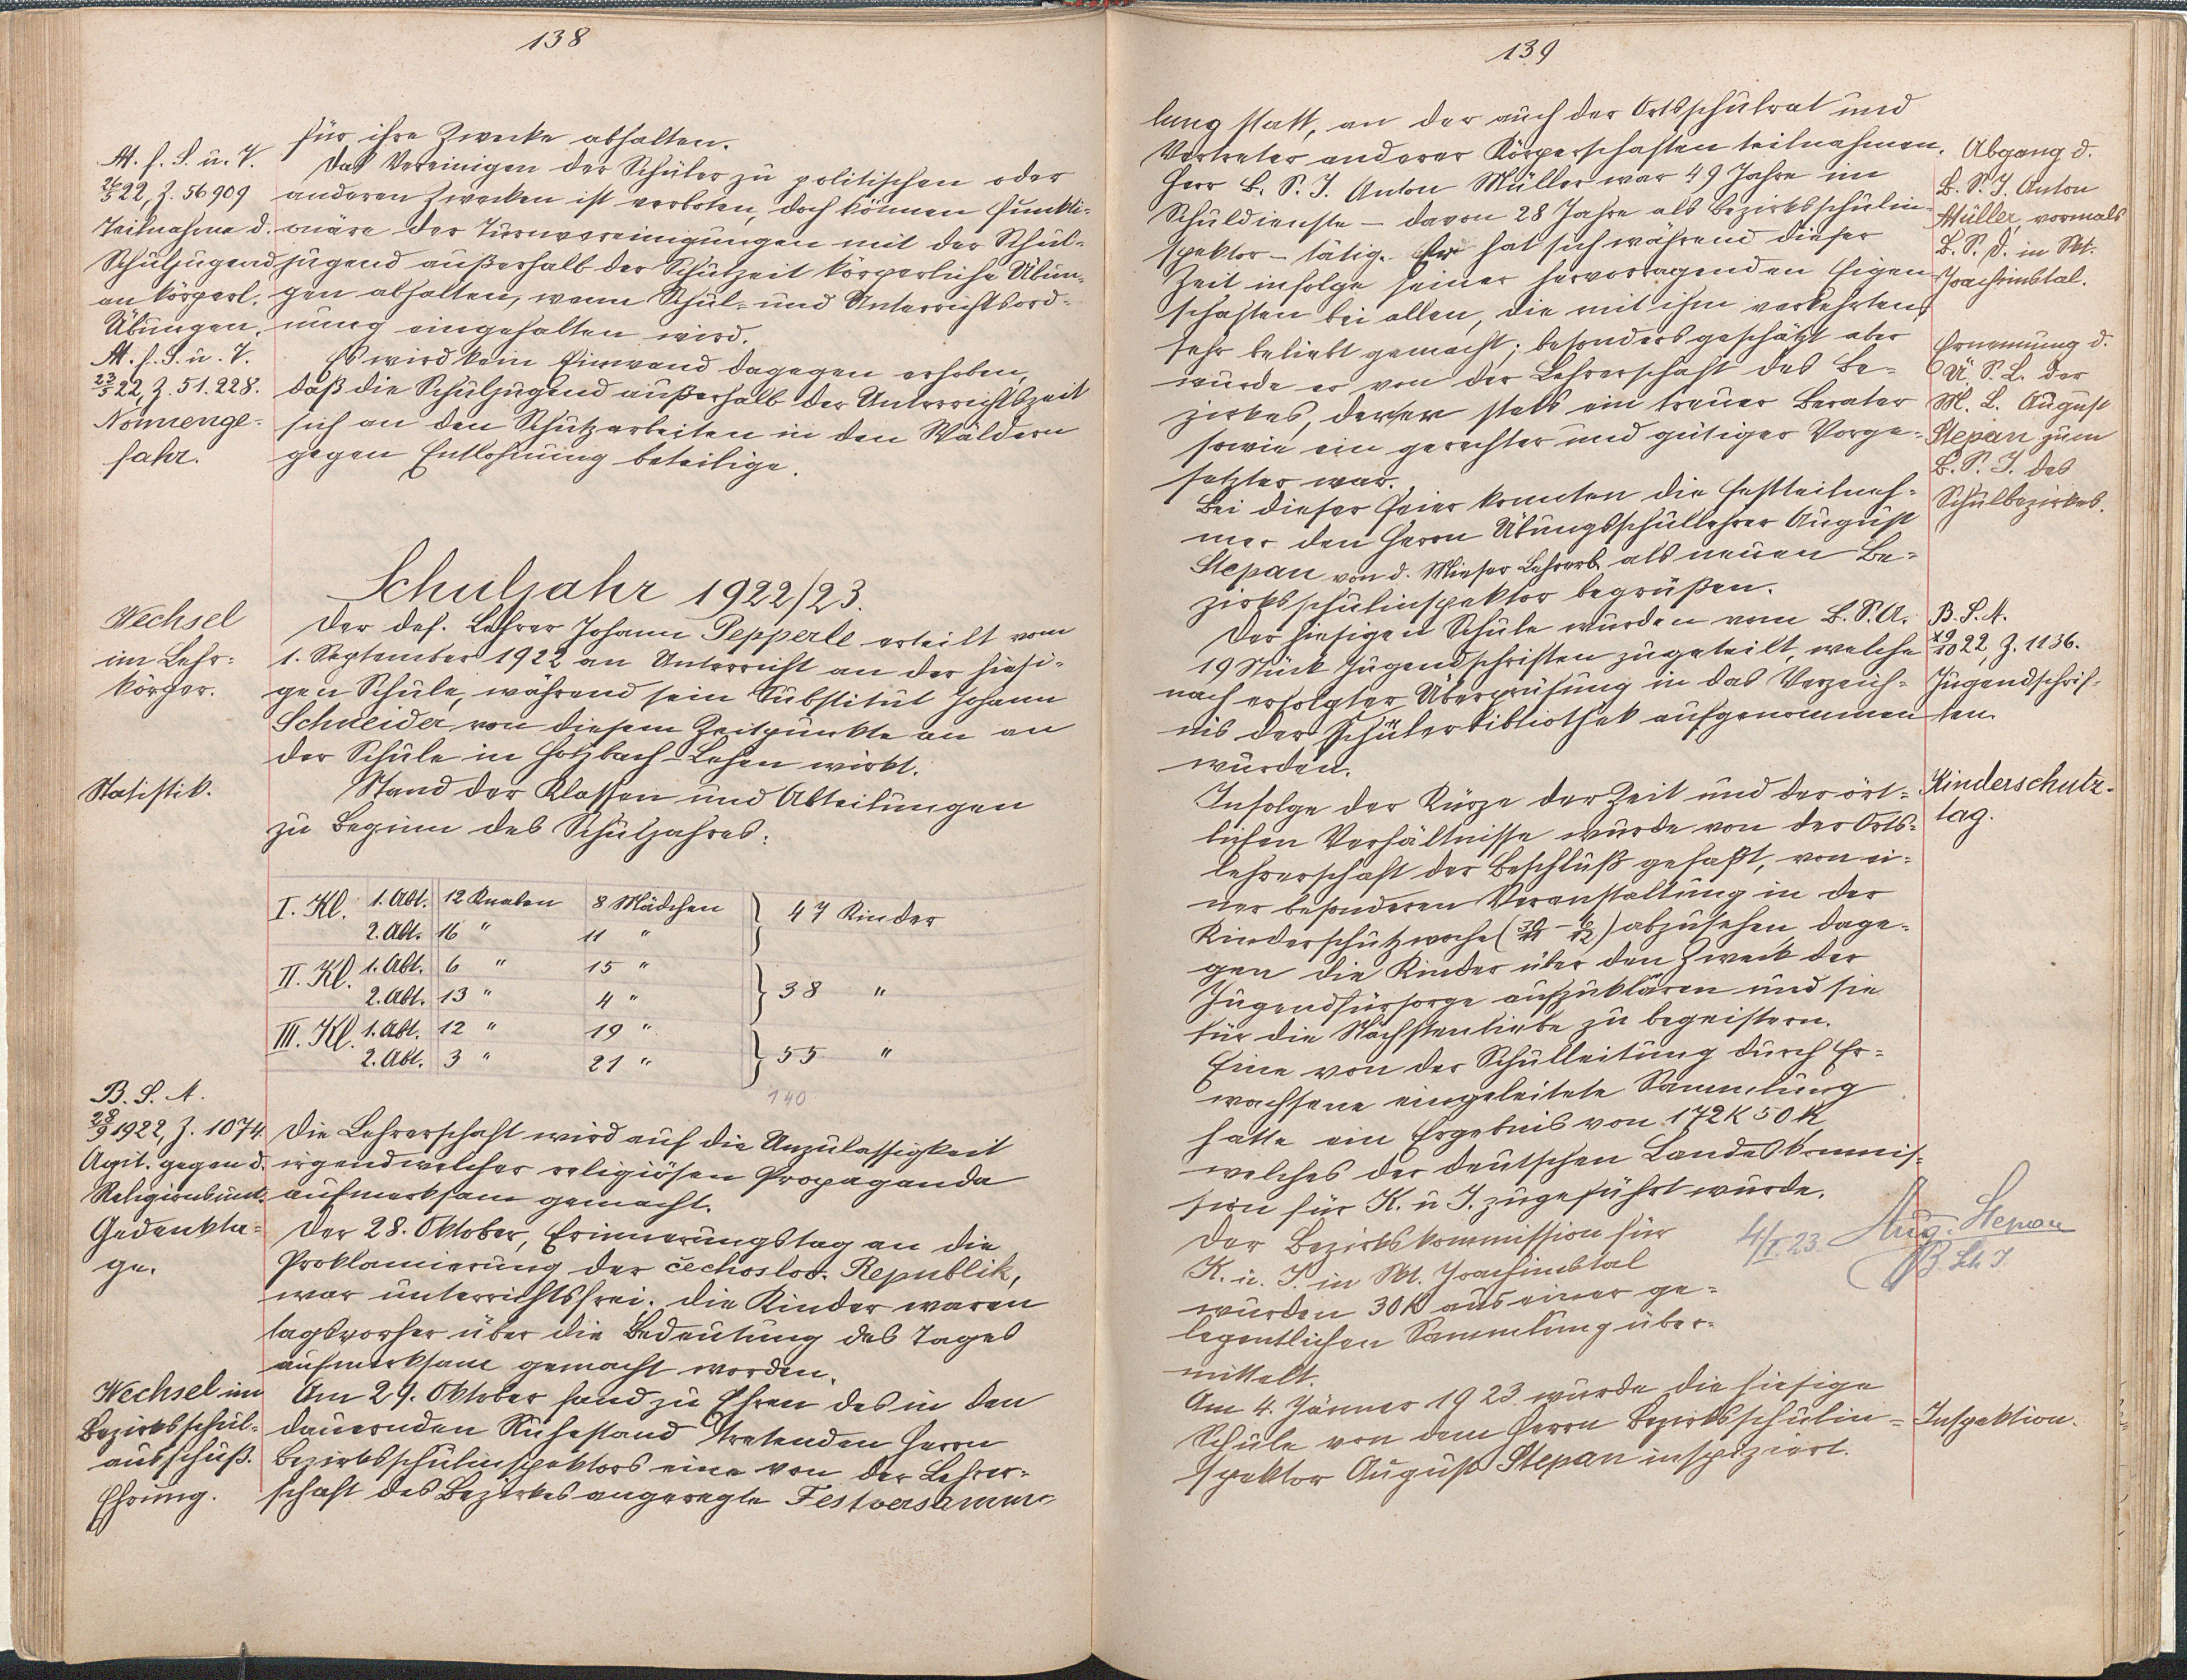 138
für ihre Zwecke abhalten.
M. f. S. u. V.
26/5 22, Z. 56909
Teilnahme d.
Schuljugend
an körperl.
Übungen.
Das Vereinigen der Schüler zu politischen oder
anderen Zwecken ist verboten, doch können Funkti-
onäre der Turnvereinigungen mit der Schul-
jugend außerhalb der Schulzeit körperliche Übun-
gen abhalten, wenn Schul- und Unterrichtsord-
nung eingehalten wird.
M. f. S. u. V.
23/5 22, Z. 51.228.
Nonnenge-
fahr.
Es wird kein Einwand dagegen erhoben,
daß die Schuljugend außerhalb der Unterrichtszeit
sich an den Schutzarbeiten in den Wäldern
gegen Entlohnung beteilige.
Schuljahr 1922/23.
Wechsel
im Lehr-
körper.
Der def. Lehrer Johann Pepperle erteilt vom
1. September 1922 an Unterricht an der hiesi-
gen Schule, während sein Substitut Johann
Schneider von diesem Zeitpunkte an an
der Schule in Holzbach-Lehen wirkt.
Statistik.
Stand der Klassen und Abteilungen
zu Beginn des Schuljahres:
I. Kl. 1. Abt. 12 Knaben 8 Mädchen } 47 Kinder
2. Abt. 16 " 11 "
II. Kl. 1. Abt. 6 " 15 " } 38 "
2. Abt. 13 " 4 "
III. Kl. 1. Abt. 12 " 19 " } 55 "
2. Abt. 3 " 21 "
140
B. S. A.
28/9 1922, Z. 1074.
Agit. gegen d.
Religionsunt.
Die Lehrerschaft wird auf die Unzulassigkeit
irgendwelcher religiösen Propaganda
aufmerksam gemacht.
Gedenkta-
ge.
Der 28. Oktober, Erinnerungstag an die
Proklamierung der čechoslov. Republik,
war unterrichtsfrei. Die Kinder waren
tagsvorher über die Bedeutung des Tages
aufmerksam gemacht worden.
Wechsel im
Bezirksschul-
ausschuß.
Ehrung.
Am 29. Oktober fand zu Ehren des in den
dauernden Ruhestand tretenden Herrn
Bezirksschulinspektors eine von der Lehrer-
schaft des Bezirkes angeregte Festversamm-
139
lung statt, an der auch der Ortsschulrat und
Vertreter anderer Körperschaften teilnahmen.
Herr B. S. I. Anton Müller war 49 Jahre im
Schuldienste – davon 28 Jahre als Bezirksschulin-
spektor – tätig. Er hat sich während dieser
Zeit infolge seiner hervorragenden Eigen-
schaften bei allen, die mit ihm verkehrten,
sehr beliebt gemacht; besonders geschätzt aber
wurde er von der Lehrerschaft des Be-
zirkes, deren er stets ein treuer Berater
sowie ein gerechter und gütiger Vorge-
setzter war.
Abgang d.
B. S. I. Anton
Müller, vormals
B. S. D. in St.
Joachimstal.
Ernennung d.
Ü. S. L. der
M. L. August
Stepan zum
B. S. I. des
Schulbezirkes.
Bei dieser Feier konnten die Festteilneh-
mer den Herrn Übungsschullehrer August
Stepan von d. Mieser Lehrerb. als neuen Be-
zirksschulinspektor begrüßen.
Der hiesigen Schule wurden vom B. S. A.
19 Stück Jugendschriften zugeteilt, welche
nach erfolgter Überprüfung in das Verzeich-
nis der Schülerbibliothek aufgenommen
wurden.
B. S. A.
19/10 22, Z. 1136.
Jugendschrif-
ten.
Infolge der Kürze der Zeit und der ört-
lichen Verhältnisse wurde von der Orts-
lehrerschaft der Beschluß gefaßt, von ei-
ner besonderen Veranstaltung in der
Kinderschutzwoche (30/11 – 6/12) abzusehen, dage-
gen die Kinder über den Zweck der
Jugendfürsorge aufzuklären und sie
für die Nächstenliebe zu begeistern.
Kinderschutz-
tag.
Eine von der Schulleitung durch Er-
wachsene eingeleitete Sammlung
hatte ein Ergebnis von 172 K 50 h,
welches der deutschen Landeskommis-
sion für K. u. J. zugeführt wurde.
Der Bezirkskommission für
K. u. J. in St. Joachimstal
wurden 30 K aus einer ge-
legentlichen Sammlung über-
mittelt.
4/I. 23. Aug. Stepan
B. Sch. I.
Am 4. Jänner 1923 wurde die hiesige
Schule von dem Herrn Bezirksschulin-
spektor August Stepan inspiziert.
Inspektion.